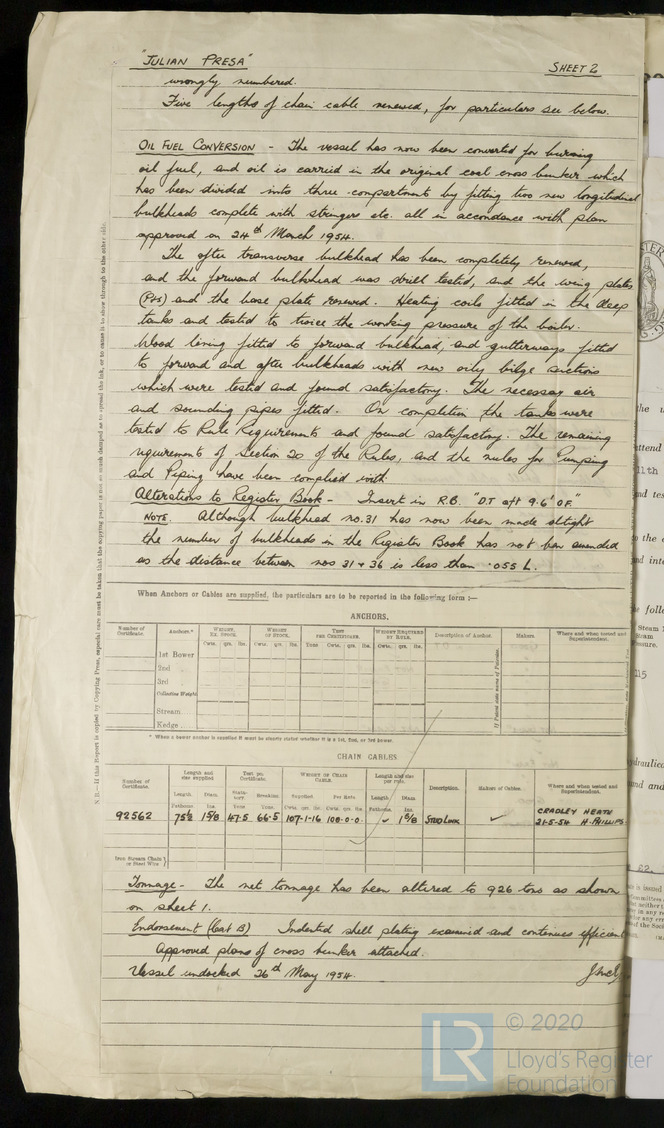 "JULIAN PRESA"
SHEET 2
wrongly numbered.
Five lengths of chain cable renewed, for particulars see below.
OIL FUEL CONVERSION - The vessel has now been converted for burning
oil fuel, and oil is carried in the original coal cross bunker which
has been divided into three compartments by fitting two new longitudinal
bulkheads complete with stringers etc. all in accordance with plan
approved on 24th March 1954.
The after transverse bulkhead has been completely renewed,
and the forward bulkhead was drill tested, and the wing plates
(P+S) and the base plate renewed. Heating coils fitted in the deep
tanks and tested to twice the working pressure of the boiler.
Wood lining fitted to forward bulkhead, and gutterways fitted
to forward and after bulkheads with new oily bilge suctions
which were tested and found satisfactory. The necessary air
and sounding pipes fitted. On completion the tanks were
tested to Rule Requirements and found satisfactory. The remaining
requirements of Section 20 of the Rules, and the rules for Pumping
and Piping have been complied with.
Alterations to Register Book - Insert in R.B. "DT aft 9.6' O.F."
NOTE. Although bulkhead no.31 has now been made oiltight
the number of bulkheads in the Register Book has not been amended
as the distance between nos 31 + 36 is less than .055 L.
When Anchors or Cables are supplied, the particulars are to be reported in the following form :—
ANCHORS.
Number of Certificate. Anchors.* WEIGHT, EX. STOCK. WEIGHT OF STOCK. TEST PER CERTIFICATE. WEIGHT REQUIRED BY RULE. Description of Anchor. Makers. Where and when tested and Superintendent.
Cwts. qrs. lbs. Cwts. qrs. lbs. Tons Cwts. qrs. lbs. Cwts. qrs. lbs.
1st Bower
2nd
3rd
Collective Weight
Stream
Kedge
If Patent state name of Patentee.
* When a bower anchor is supplied it must be clearly stated whether it is a 1st, 2nd, or 3rd bower.
CHAIN CABLES.
Number of Certificate. Length and size supplied Test per Certificate. WEIGHT OF CHAIN CABLE. Length and size per rule. Description. Makers of Cables. Where and when tested and Superintendent.
Length. Diam. Statutory. Breaking. Supplied. Per Rule. Length Diam
Fathoms. Ins. Tons. Tons. Cwts. qrs. lbs. Cwts. qrs. lbs. Fathoms. Ins.
92562 75½ 1 5/8 47.5 66.5 107-1-16 108-0-0 ✓ 1 5/8 STUD LINK ✓ CRADLEY HEATH
21-5-54 H. PHILLIPS
Iron Stream Chain or Steel Wire
Tonnage - The net tonnage has been altered to 926 tons as shown
on sheet 1.
Endorsement (Cert B) Indented shell plating examined and continues efficient
Approved plans of cross bunker attached.
Vessel undocked 26th May 1954.
N.B.—If this Report is copied by Copying Press, especial care must be taken that the copying paper is not so much damped as to spread the ink, or to cause it to show through to the other side.
© 2020
LR
Lloyd's Register
Foundation